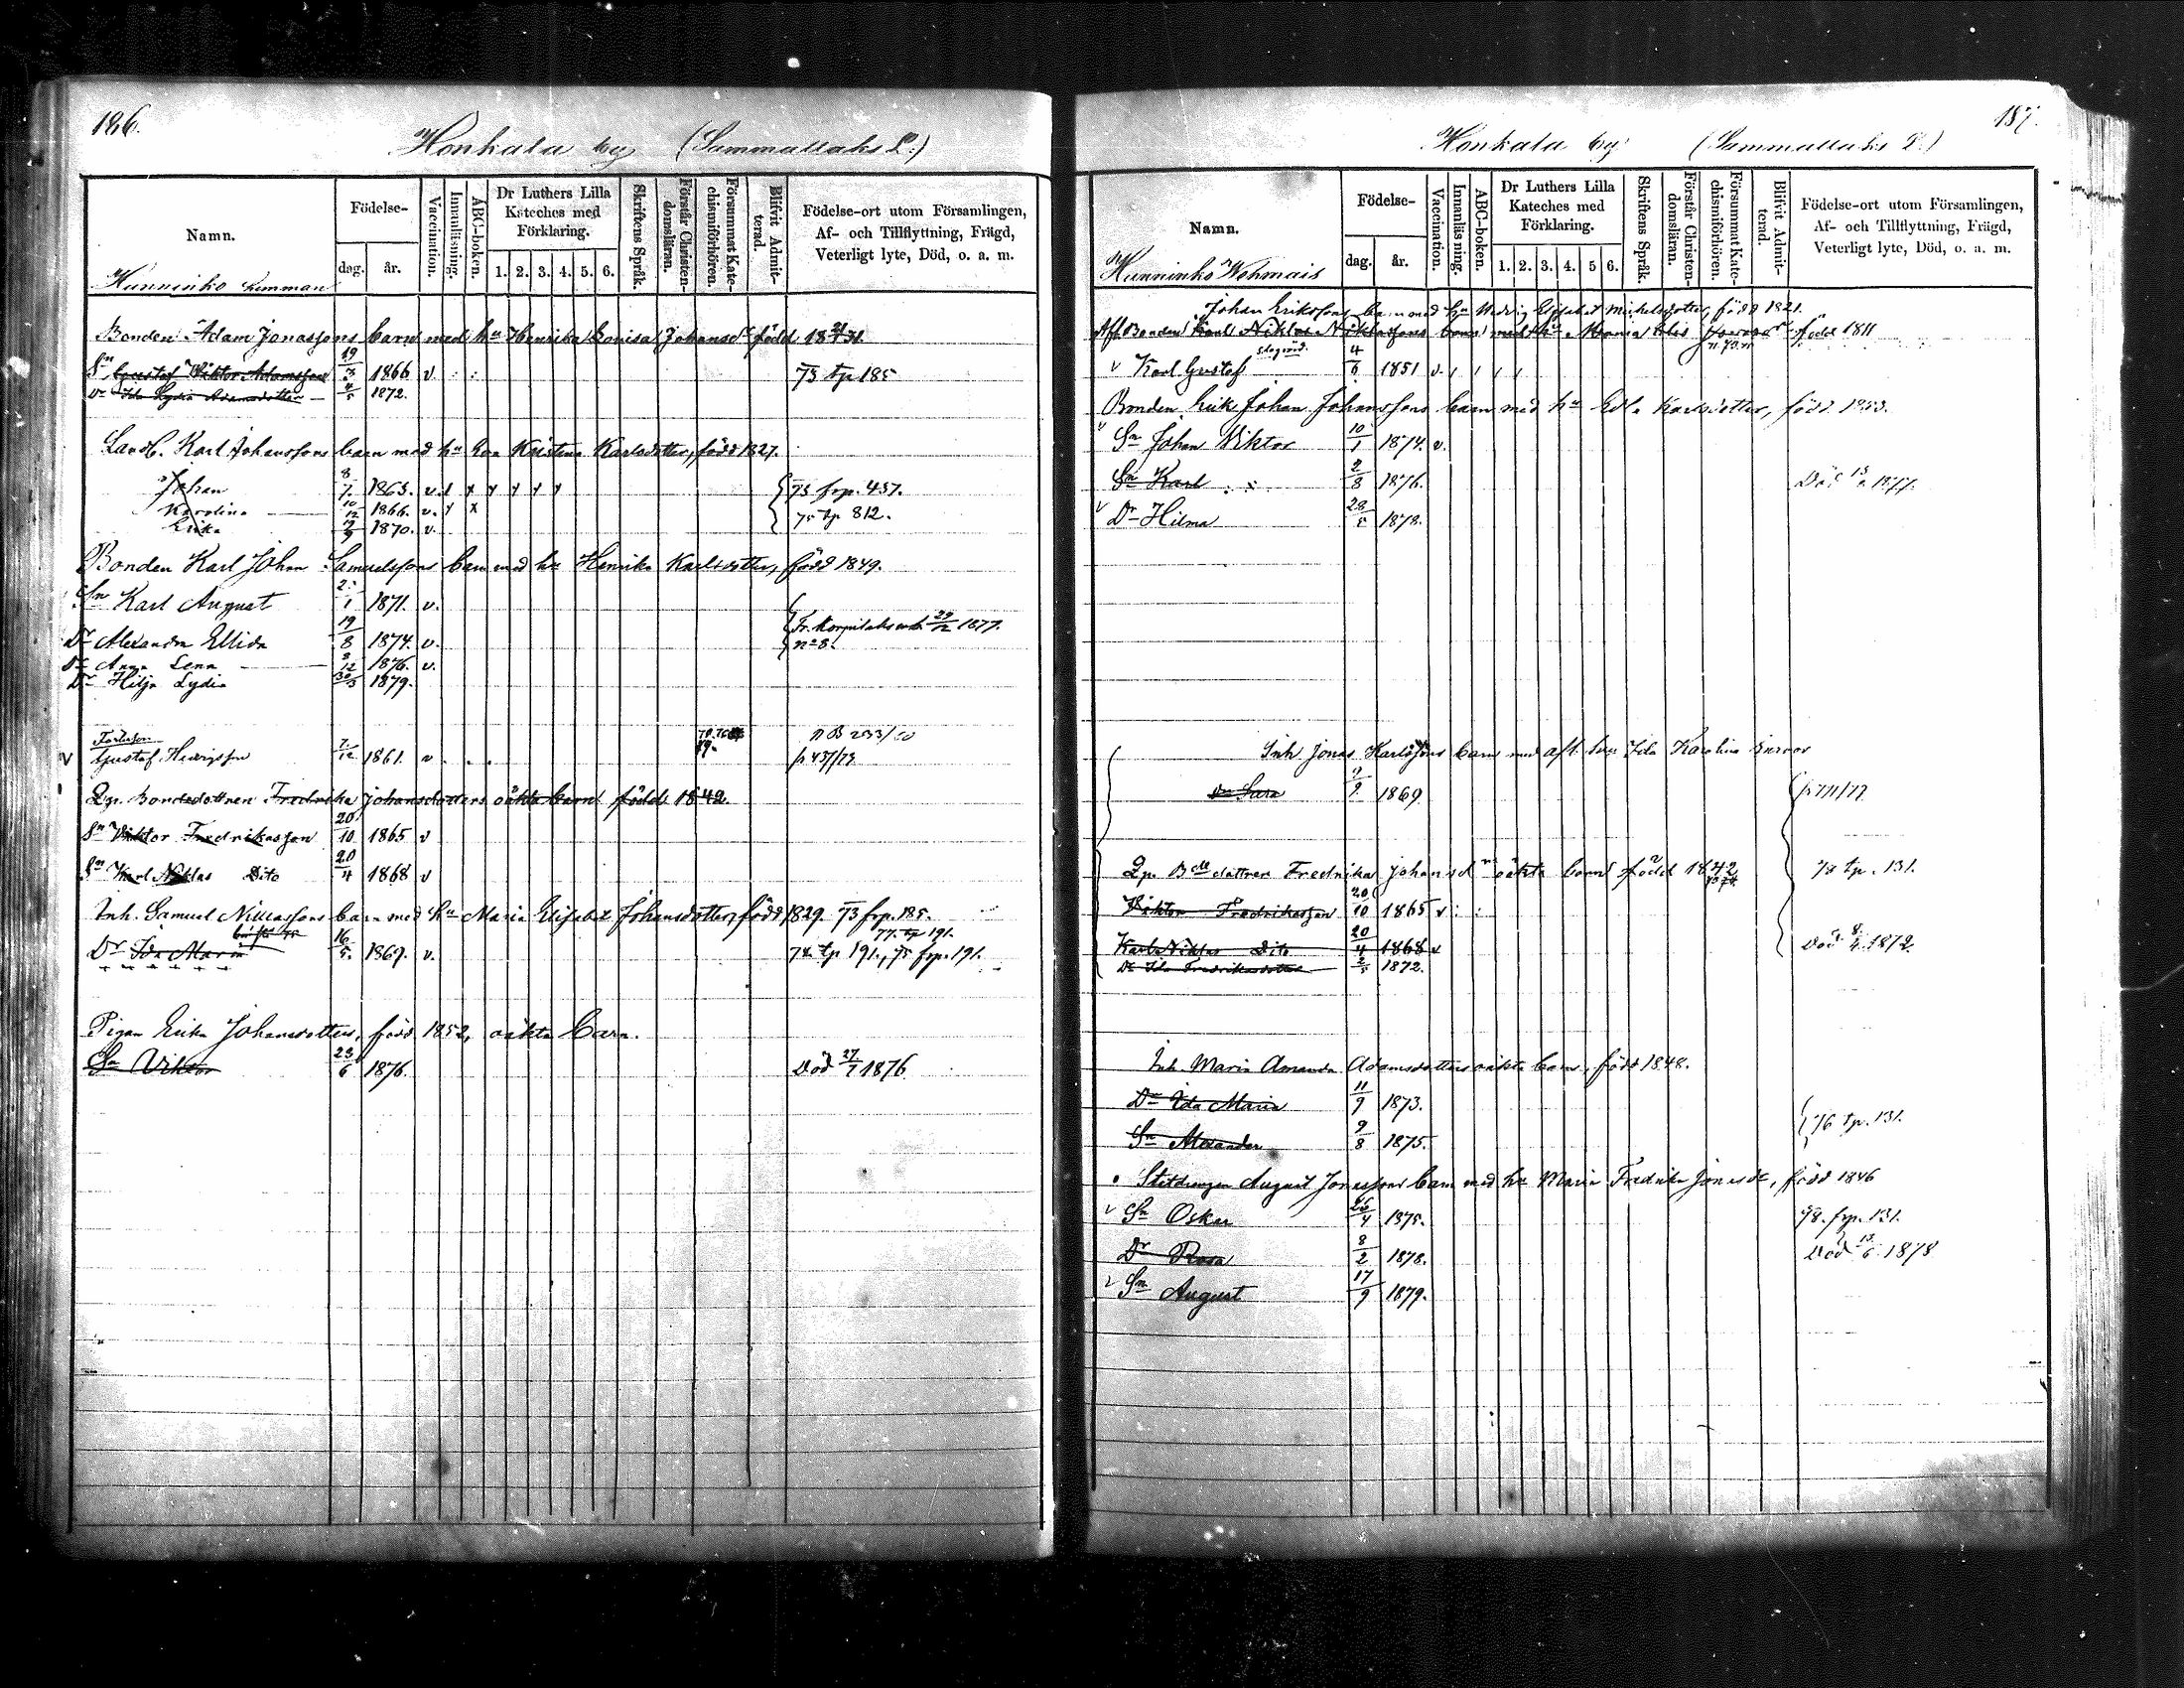 186.
Honkala by (Sammallaks L.)
Namn.
Födelse-
dag. år.
Vaccination.
Innanläsning.
ABC-boken.
Dr Luthers Lilla Kateches med Förklaring.
1. 2. 3. 4. 5. 6.
Skriftens Språk.
Förstår Christendomsläran.
Försummat Katechismiförhören.
Blifvit Admitterad.
Födelse-ort utom Församlingen, Af- och Tillflyttning, Frägd, Veterligt lyte, Död, o. a. m.
Hunninko hemman
Bonden Adam Jonassons barn med hu Henrika Lovisa Johansdr född 18 31.
Sn Gustaf Viktor Adamsson 19/3 1866 v. 73 tp 185
Dr Ida Lydia Adamsdotter 4/5 1872.
Landb. Karl Johanssons barn med hu Eva Kristina Karlsdotter, född 1827.
Johan 8/7 1863. v. 73 frp. 437.
Karolina 10/12 1866. v. 75 tp 812.
Erika 1870. v.
Bonden Karl Johan Samuelssons barn med hu Henrika Karlsdotter, född 1849.
Sn Karl August 1871. v.
Dr Alexandra Ellida 19/8 1874. v. Fr. Korpilaks 29/12 1877. no 8.
Dr Anna Lena 8/12 1876. v.
Dr Hilja Lydia 30/3 1879.
Gustaf Henriksson 7/12 1861. v p 437/73
Lgr. Bondedottren Fredrika Johansdotters oäkta barn född 1842.
Sn Viktor Fredrikasson 20/10 1865 v
Sn Karl Niklas Dito 20/4 1868 v
Inh. Samuel Niklassons barn med hu Maria Elisabet Johansdotter, född 1829. 73 frp. 185.
77 tp 191.
Dr Ida Maria 16/5 1869. v. 74 tp 191., 75 frp. 191.
Pigan Erika Johansdotters, född 1852, oäkta barn.
Sn Viktor 23/6 1876. Död 27/7 1876
187.
Honkala by (Sammallaks L.)
Namn.
Födelse-
dag. år.
Vaccination.
Innanläsning.
ABC-boken.
Dr Luthers Lilla Kateches med Förklaring.
1. 2. 3. 4. 5 6.
Skriftens Språk.
Förstår Christendomsläran.
Försummat Katechismiförhören.
Blifvit Admitterad.
Födelse-ort utom Församlingen, Af- och Tillflyttning, Frägd, Veterligt lyte, Död, o. a. m.
Hunninko Wohmais
Johan Erikssons barn med hu Hedvig Elisabet Mickelsdotter, född 1821.
Afl. Bonden Karl Niklas Niklassons barn med hu Maria född 1811
v Karl Gustaf 4/6 1851 v.
Bonden Erik Johan Johanssons barn med hu Edla Karlsdotter, född 1853.
v Sn Johan Viktor 10/1 1874. v.
Sn Karl 2/8 1876. Död 1877.
v Dr Hilma 28/5 1878.
Inh. Jonas Karlssons barn med afl. hu Ida Karolina
Dr Sara 1869 p 711/77
Lgr. Bde dottren Fredrika Johansdrs oäkta barn född 1842 78 tp. 131.
Viktor Fredrikasson 20/10 1865 v
Karl Niklas Dito 20/4 1868 v Död 1872.
Dr Ida Fredrikasdotter 2/5 1872.
Inh. Maria Amanda Adamsdotters oäkta barn, född 1848.
Dr Ida Maria 11/9 1873.
Sn Alexander 9/8 1875. 76 tp. 131.
Statdrengen August Jonassons barn med hu Maria Fredrika Jonasdr, född 1846
v Sn Oskar 1875. 78. frp. 131.
Dr Rosa 8/2 1878. Död 1878
v Sn August 17/9 1879.